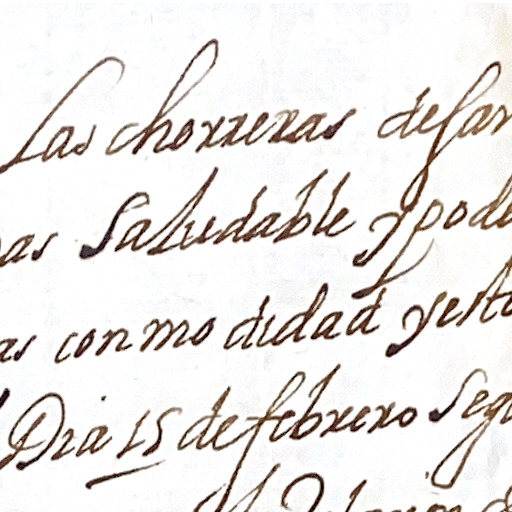 Las chorreras de san
as Saludable y pode
as conmodidad y esto
Dia 15 de febrero seg